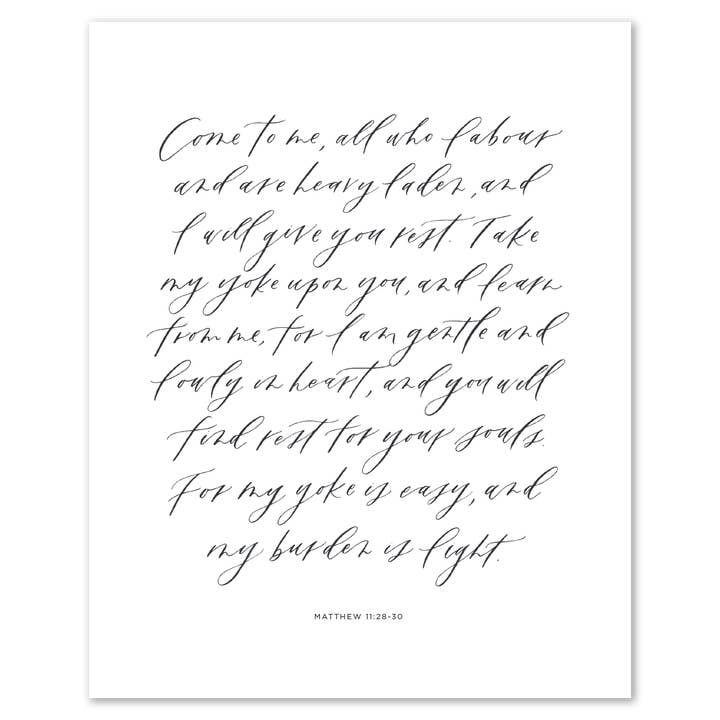 Come to me, all who labour
and are heavy laden, and
I will give you rest. Take
my yoke upon you, and learn
from me, for I am gentle and
lowly in heart, and you will
find rest for your souls.
For my yoke is easy, and
my burden is light.
MATTHEW 11:28-30